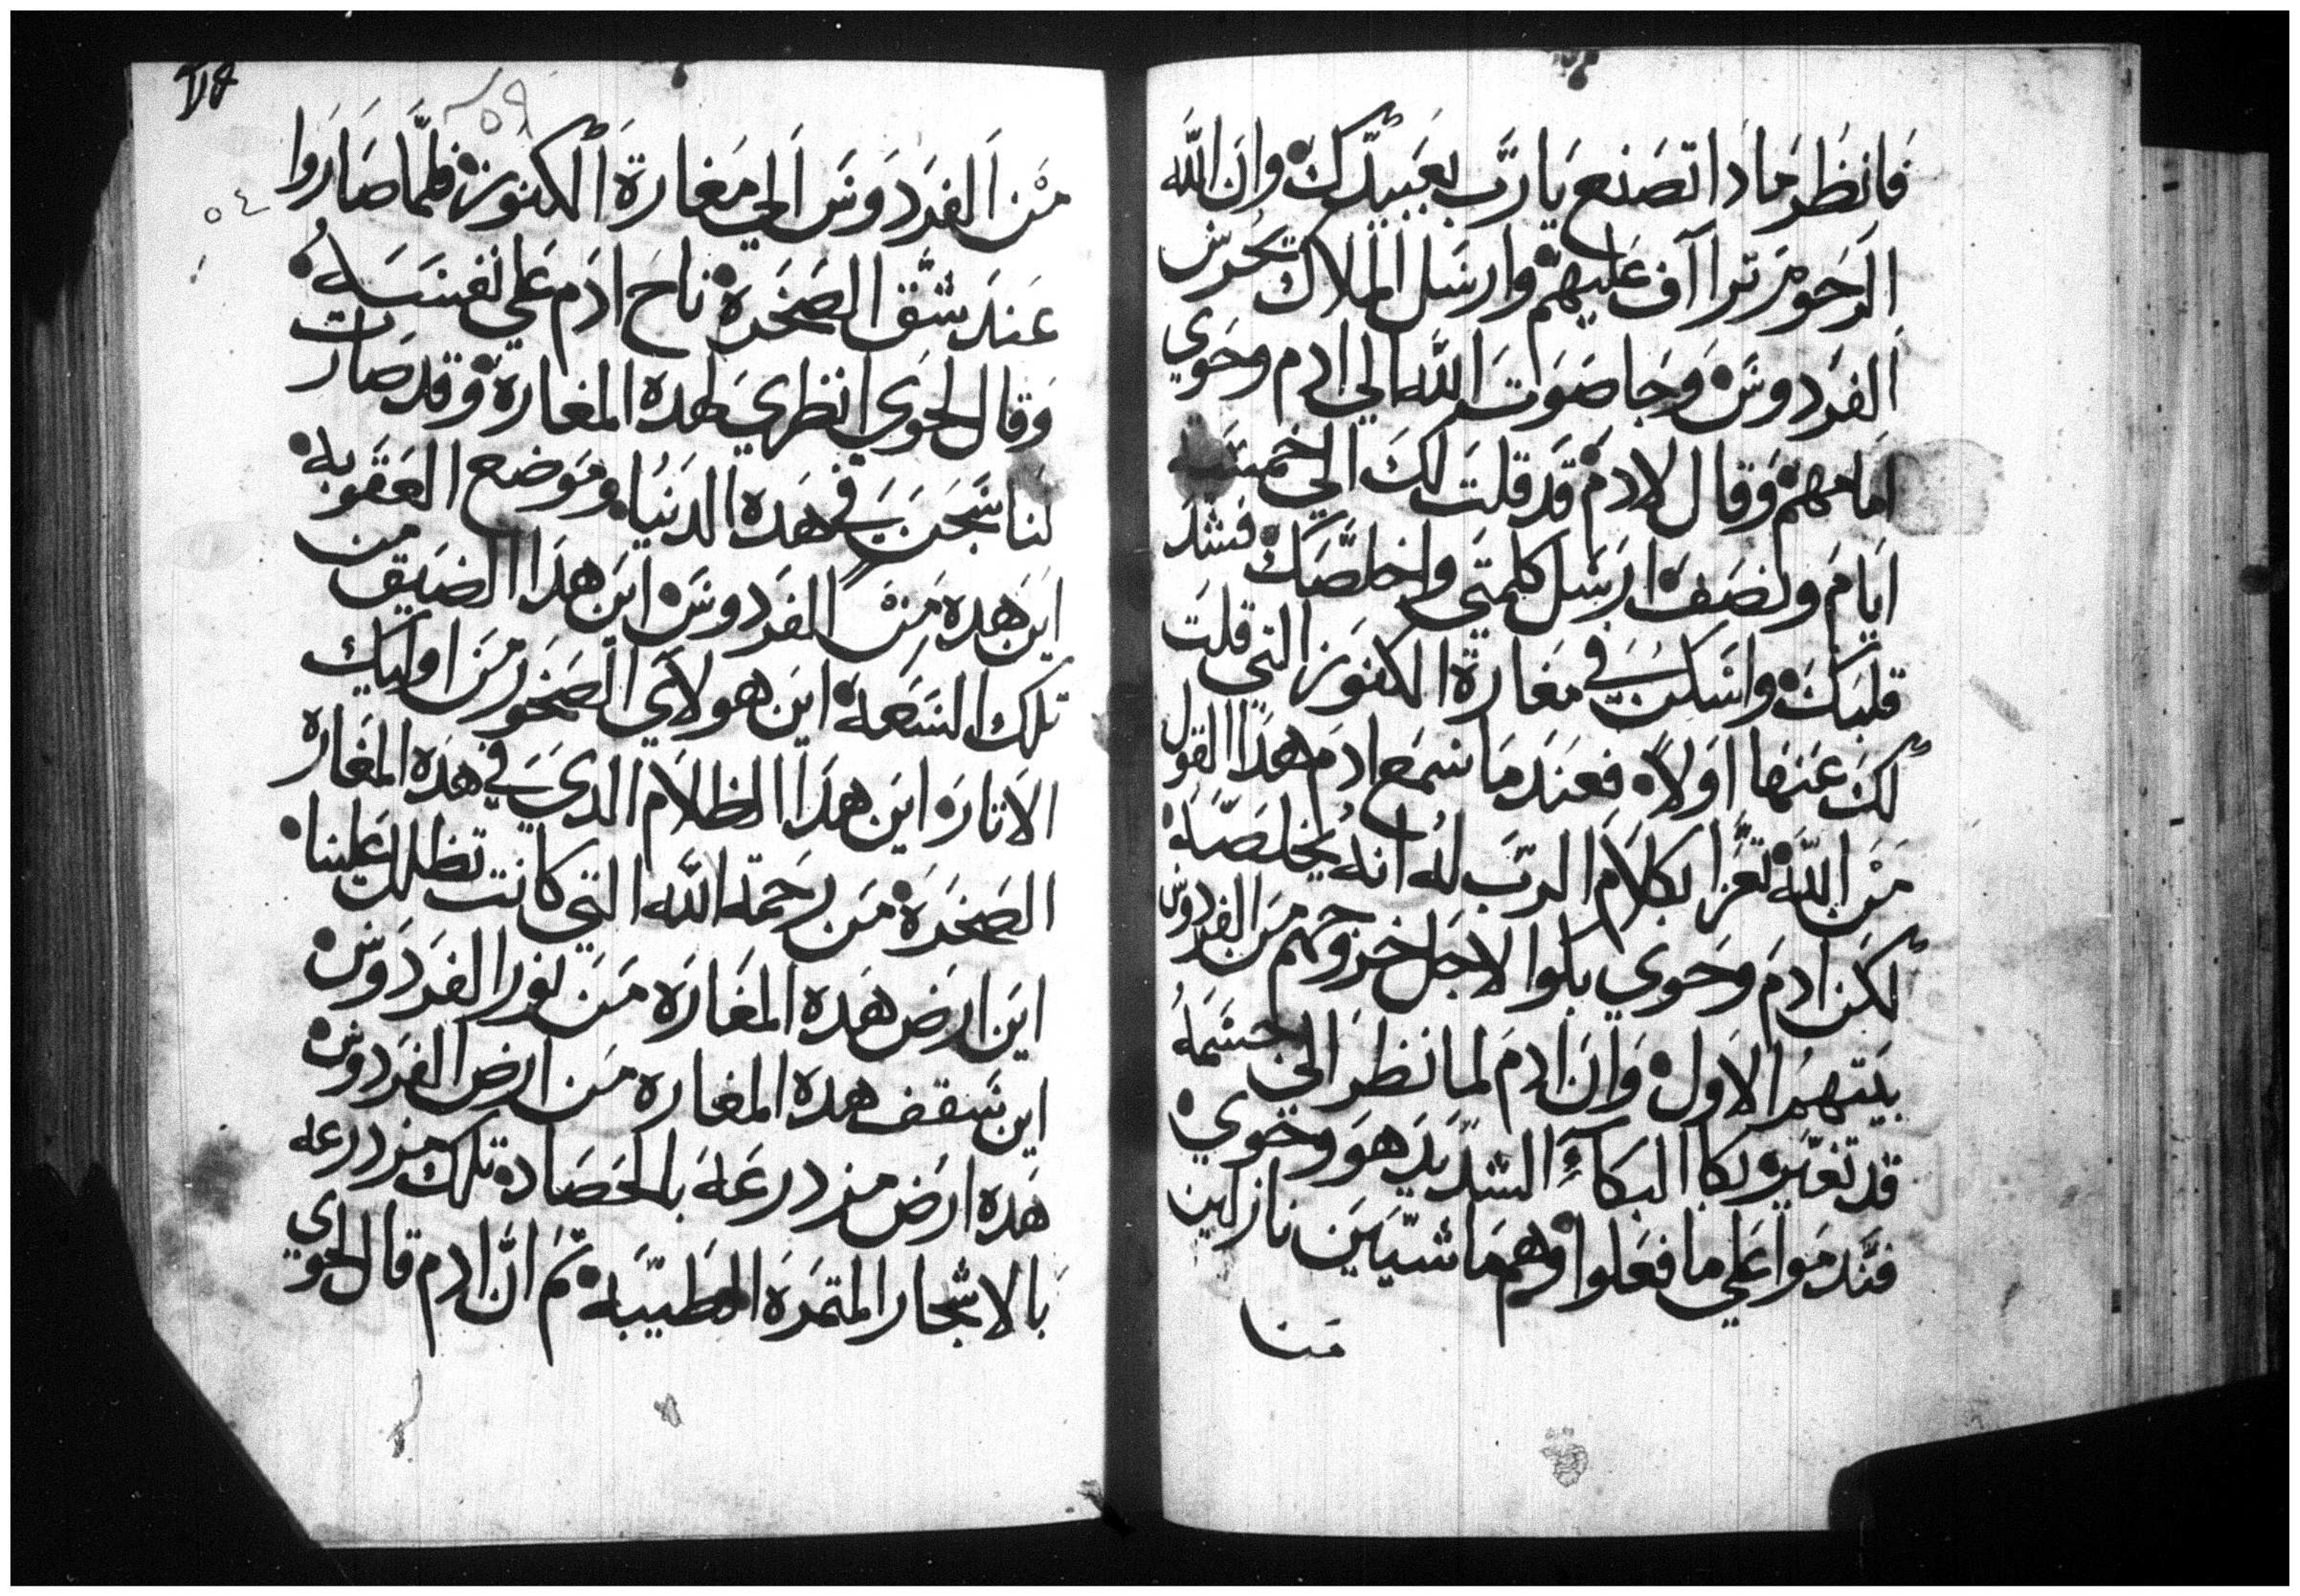 فانظر مادا تصنع يا رب بعبيدك وان الله
الرحوم تراآف عليهم وارسل الملاك يحرس
الفردوس وجا صوت الله الي ادم وحوي
امامهم وقال لادم قد قلت لك الي خمسة
ايام ونصف ارسل كلمتي واخلصك فشد
قلبك واسكن في مغارة الكنوز التي قلت
لك عنها اولاً فعند ما سمع ادم هدا القول
من الله تعزا بكلام الرب له انه يخلصه
لكن ادم وحوي بكوا لاجل خروجهم من الفردوس
بيتهم الاول وان ادم لما نظر الي جسمه
قد تغير بكا البكاء الشديد هو وحوي
فندموا علي ما فعلوا وهم ماشيين نازلين
منا
من الفردوس الي مغارة الكنوز فلما صاروا
عند شق الصخرة ناح ادم علي نفسه
وقال لحوي انظري لهده المغارة وقد صارت
لنا سجن في هده الدنيا وموضع العقوبه
اين هده من الفردوس اين هدا الضيق من
تلك السعة اين هولاي الصخور من اوليك
الاتار اين هدا الظلام الدي في هده المغاره
الصخرة من رحمة الله التي كانت تظلل علينا
اين ارض هده المغاره من نور الفردوس
اين سقف هده المغاره من ارض الفردوس
هده ارض مزدرعة بالحصاده تلك مزدرعه
بالاشجار المتمرة الطيبه تم ان ادم قال لحوي